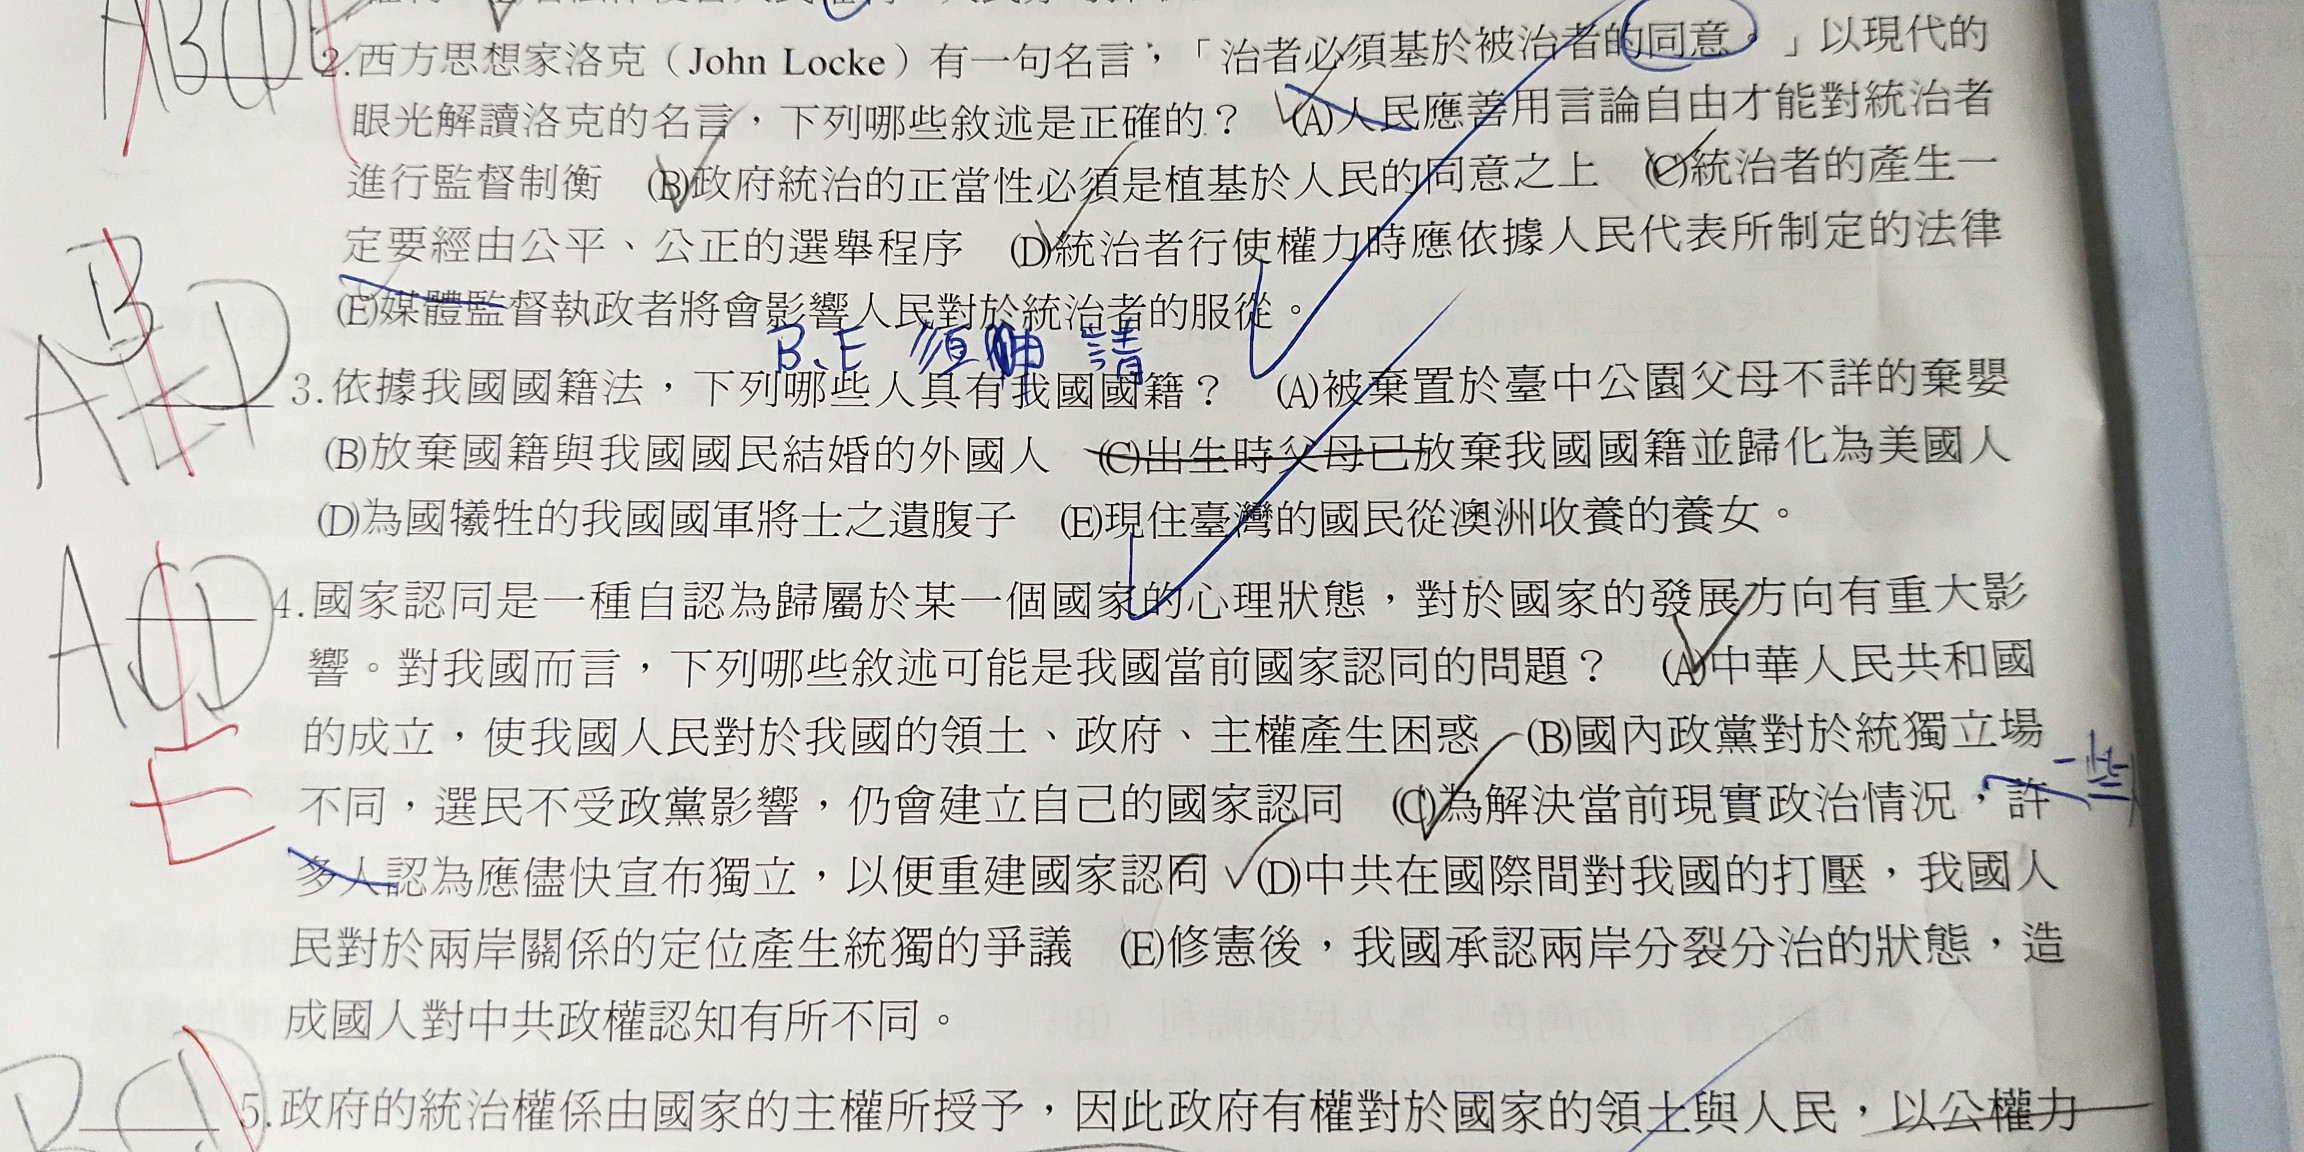 2.西方思想家洛克（John Locke）有一句名言，「治者必須基於被治者的同意。」以現代的
眼光解讀洛克的名言，下列哪些敘述是正確的？ (A)人民應善用言論自由才能對統治者
進行監督制衡 (B)政府統治的正當性必須是植基於人民的同意之上 (C)統治者的產生一
定要經由公平、公正的選舉程序 (D)統治者行使權力時應依據人民代表所制定的法律
(E)媒體監督執政者將會影響人民對於統治者的服從。
B、E 須申請
ABED
3.依據我國國籍法，下列哪些人具有我國國籍？ (A)被棄置於臺中公園父母不詳的棄嬰
(B)放棄國籍與我國國民結婚的外國人 (C)出生時父母已放棄我國國籍並歸化為美國人
(D)為國犧牲的我國國軍將士之遺腹子 (E)現住臺灣的國民從澳洲收養的養女。
ACD
4.國家認同是一種自認為歸屬於某一個國家的心理狀態，對於國家的發展方向有重大影
響。對我國而言，下列哪些敘述可能是我國當前國家認同的問題？ (A)中華人民共和國
的成立，使我國人民對於我國的領土、政府、主權產生困惑 (B)國內政黨對於統獨立場
一些
E
不同，選民不受政黨影響，仍會建立自己的國家認同 (C)為解決當前現實政治情況，許
多人認為應儘快宣布獨立，以便重建國家認同 (D)中共在國際間對我國的打壓，我國人
民對於兩岸關係的定位產生統獨的爭議 (E)修憲後，我國承認兩岸分裂分治的狀態，造
成國人對中共政權認知有所不同。
5.政府的統治權係由國家的主權所授予，因此政府有權對於國家的領土與人民，以公權力